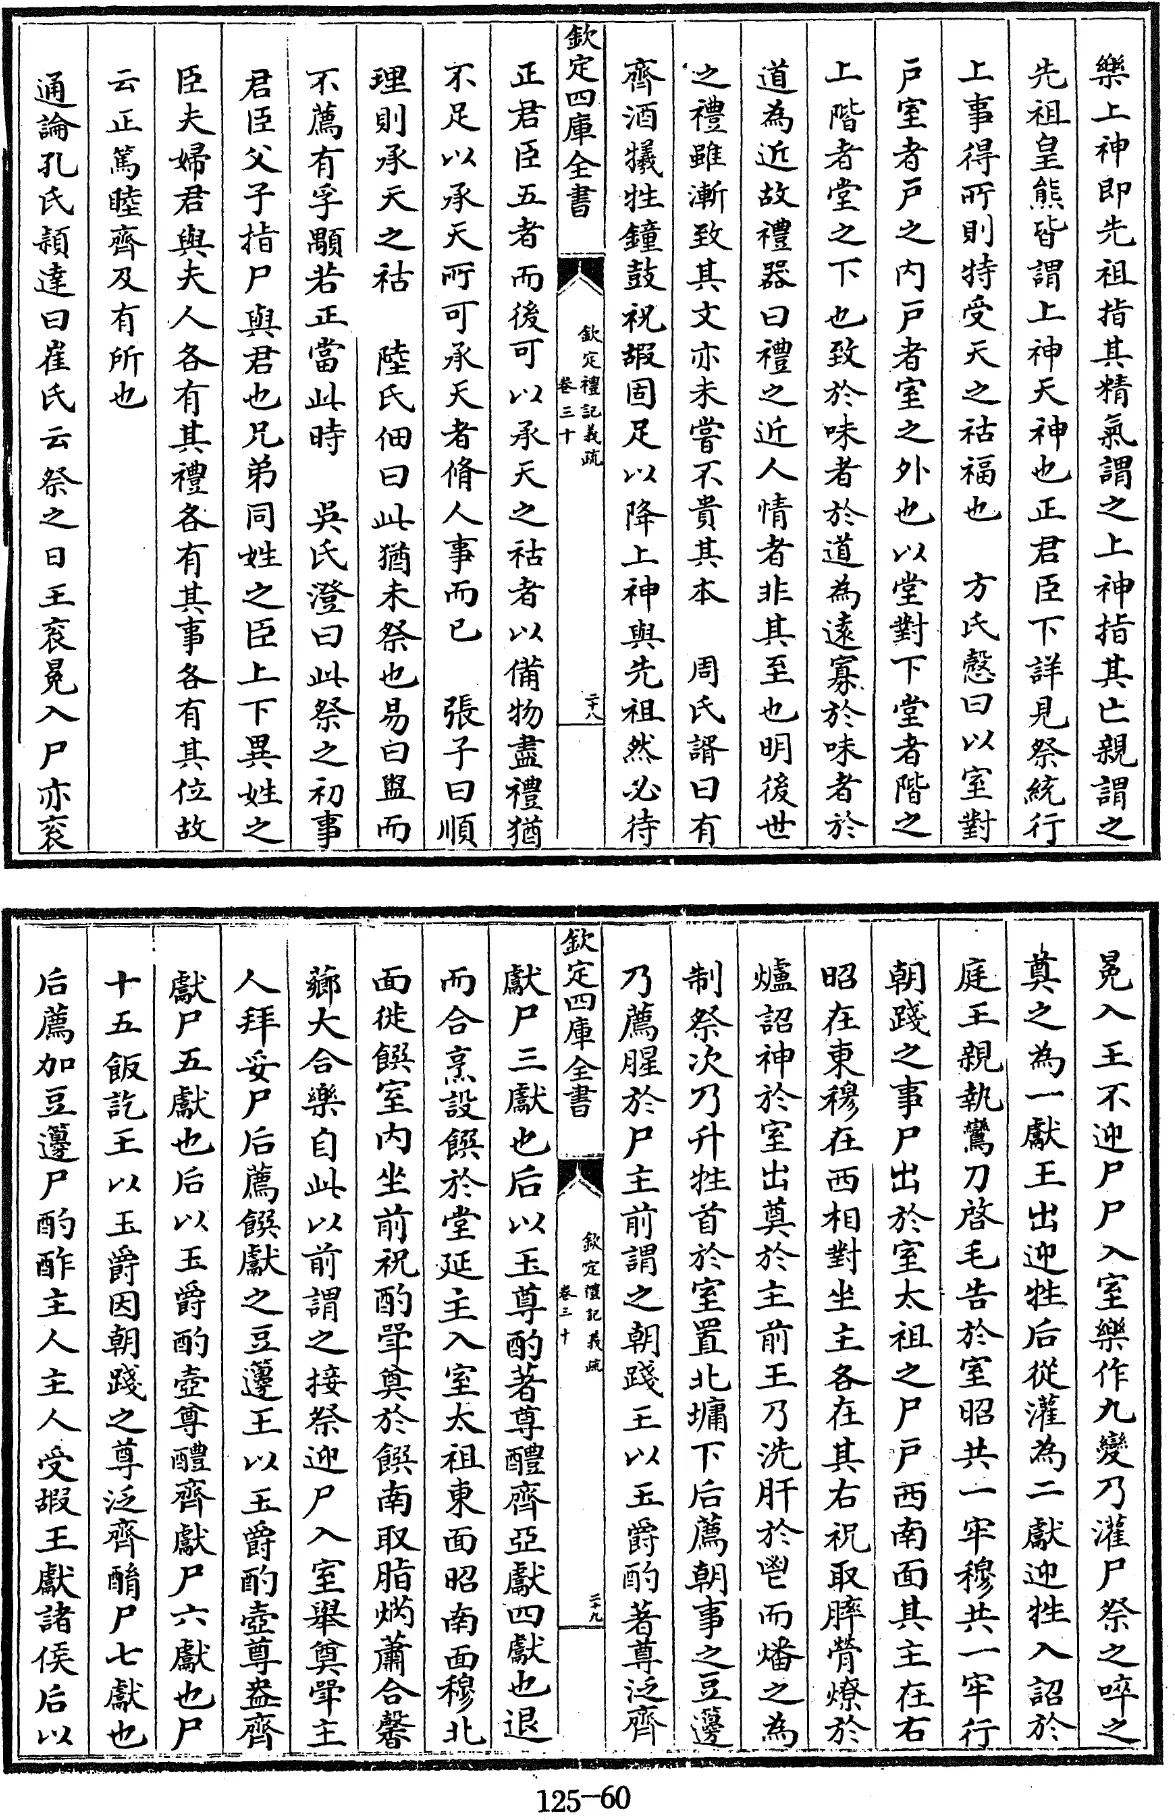 樂上神即先祖指其精氣謂之上神指其亡親謂之
先祖皇熊皆謂上神天神也正君臣下詳見祭統行
上事得所則特受天之祜福也　方氏慤曰以室對
戶室者戶之內戶者室之外也以堂對下堂者階之
上階者堂之下也致於味者於道為遠寡於味者於
道為近故禮器曰禮之近人情者非其至也明後世
之禮雖漸致其文亦未嘗不貴其本　周氏諝曰有
齊酒犧牲鐘鼓祝嘏固足以降上神與先祖然必待
欽定四庫全書
欽定禮記義疏
卷三十
二十八
正君臣五者而後可以承天之祜者以備物盡禮猶
不足以承天所可承天者脩人事而已　張子曰順
理則承天之祜　陸氏佃曰此猶未祭也易曰盥而
不薦有孚顒若正當此時　吳氏澄曰此祭之初事
君臣父子指尸與君也兄弟同姓之臣上下異姓之
臣夫婦君與夫人各有其禮各有其事各有其位故
云正篤睦齊及有所也
通論孔氏穎達曰崔氏云祭之日王衮冕入尸亦衮
冕入王不迎尸尸入室樂作九變乃灌尸祭之啐之
奠之為一獻王出迎牲后從灌為二獻迎牲入詔於
庭王親執鸞刀啓毛告於室昭共一牢穆共一牢行
朝踐之事尸出於室太祖之尸戶西南面其主在右
昭在東穆在西相對坐主各在其右祝取膟膋燎於
爐詔神於室出奠於主前王乃洗肝於鬯而燔之為
制祭次乃升牲首於室置北墉下后薦朝事之豆籩
乃薦腥於尸主前謂之朝踐王以玉爵酌著尊泛齊
欽定四庫全書
欽定禮記義疏
卷三十
二十九
獻尸三獻也后以玉尊酌著尊醴齊亞獻四獻也退
而合烹設饌於堂延主入室太祖東面昭南面穆北
面徙饌室內坐前祝酌斝奠於饌南取脂焫蕭合馨
薌大合樂自此以前謂之接祭迎尸入室舉奠斝主
人拜妥尸后薦饌獻之豆籩王以玉爵酌壺尊盎齊
獻尸五獻也后以玉爵酌壺尊醴齊獻尸六獻也尸
十五飯訖王以玉爵因朝踐之尊泛齊酳尸七獻也
后薦加豆籩尸酌酢主人主人受嘏王獻諸侯后以
125-60